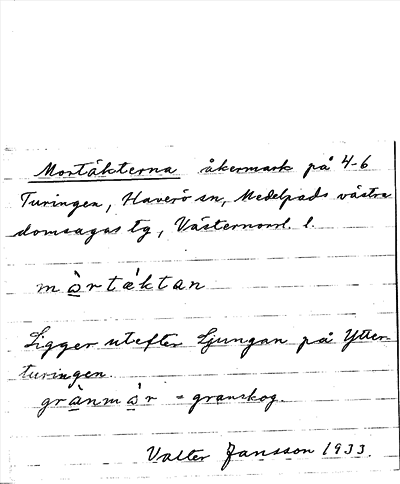 Mortäkterna åkermark på 4-6
Turingen, Haverö sn, Medelpads västra
domsagas tg, Västernorrl. l.
mὰrtæ´ktan
Ligger utefter Ljungan på Ytter-
turingen.
grὰnmὰr = granskog.
Valter Jansson 1933.